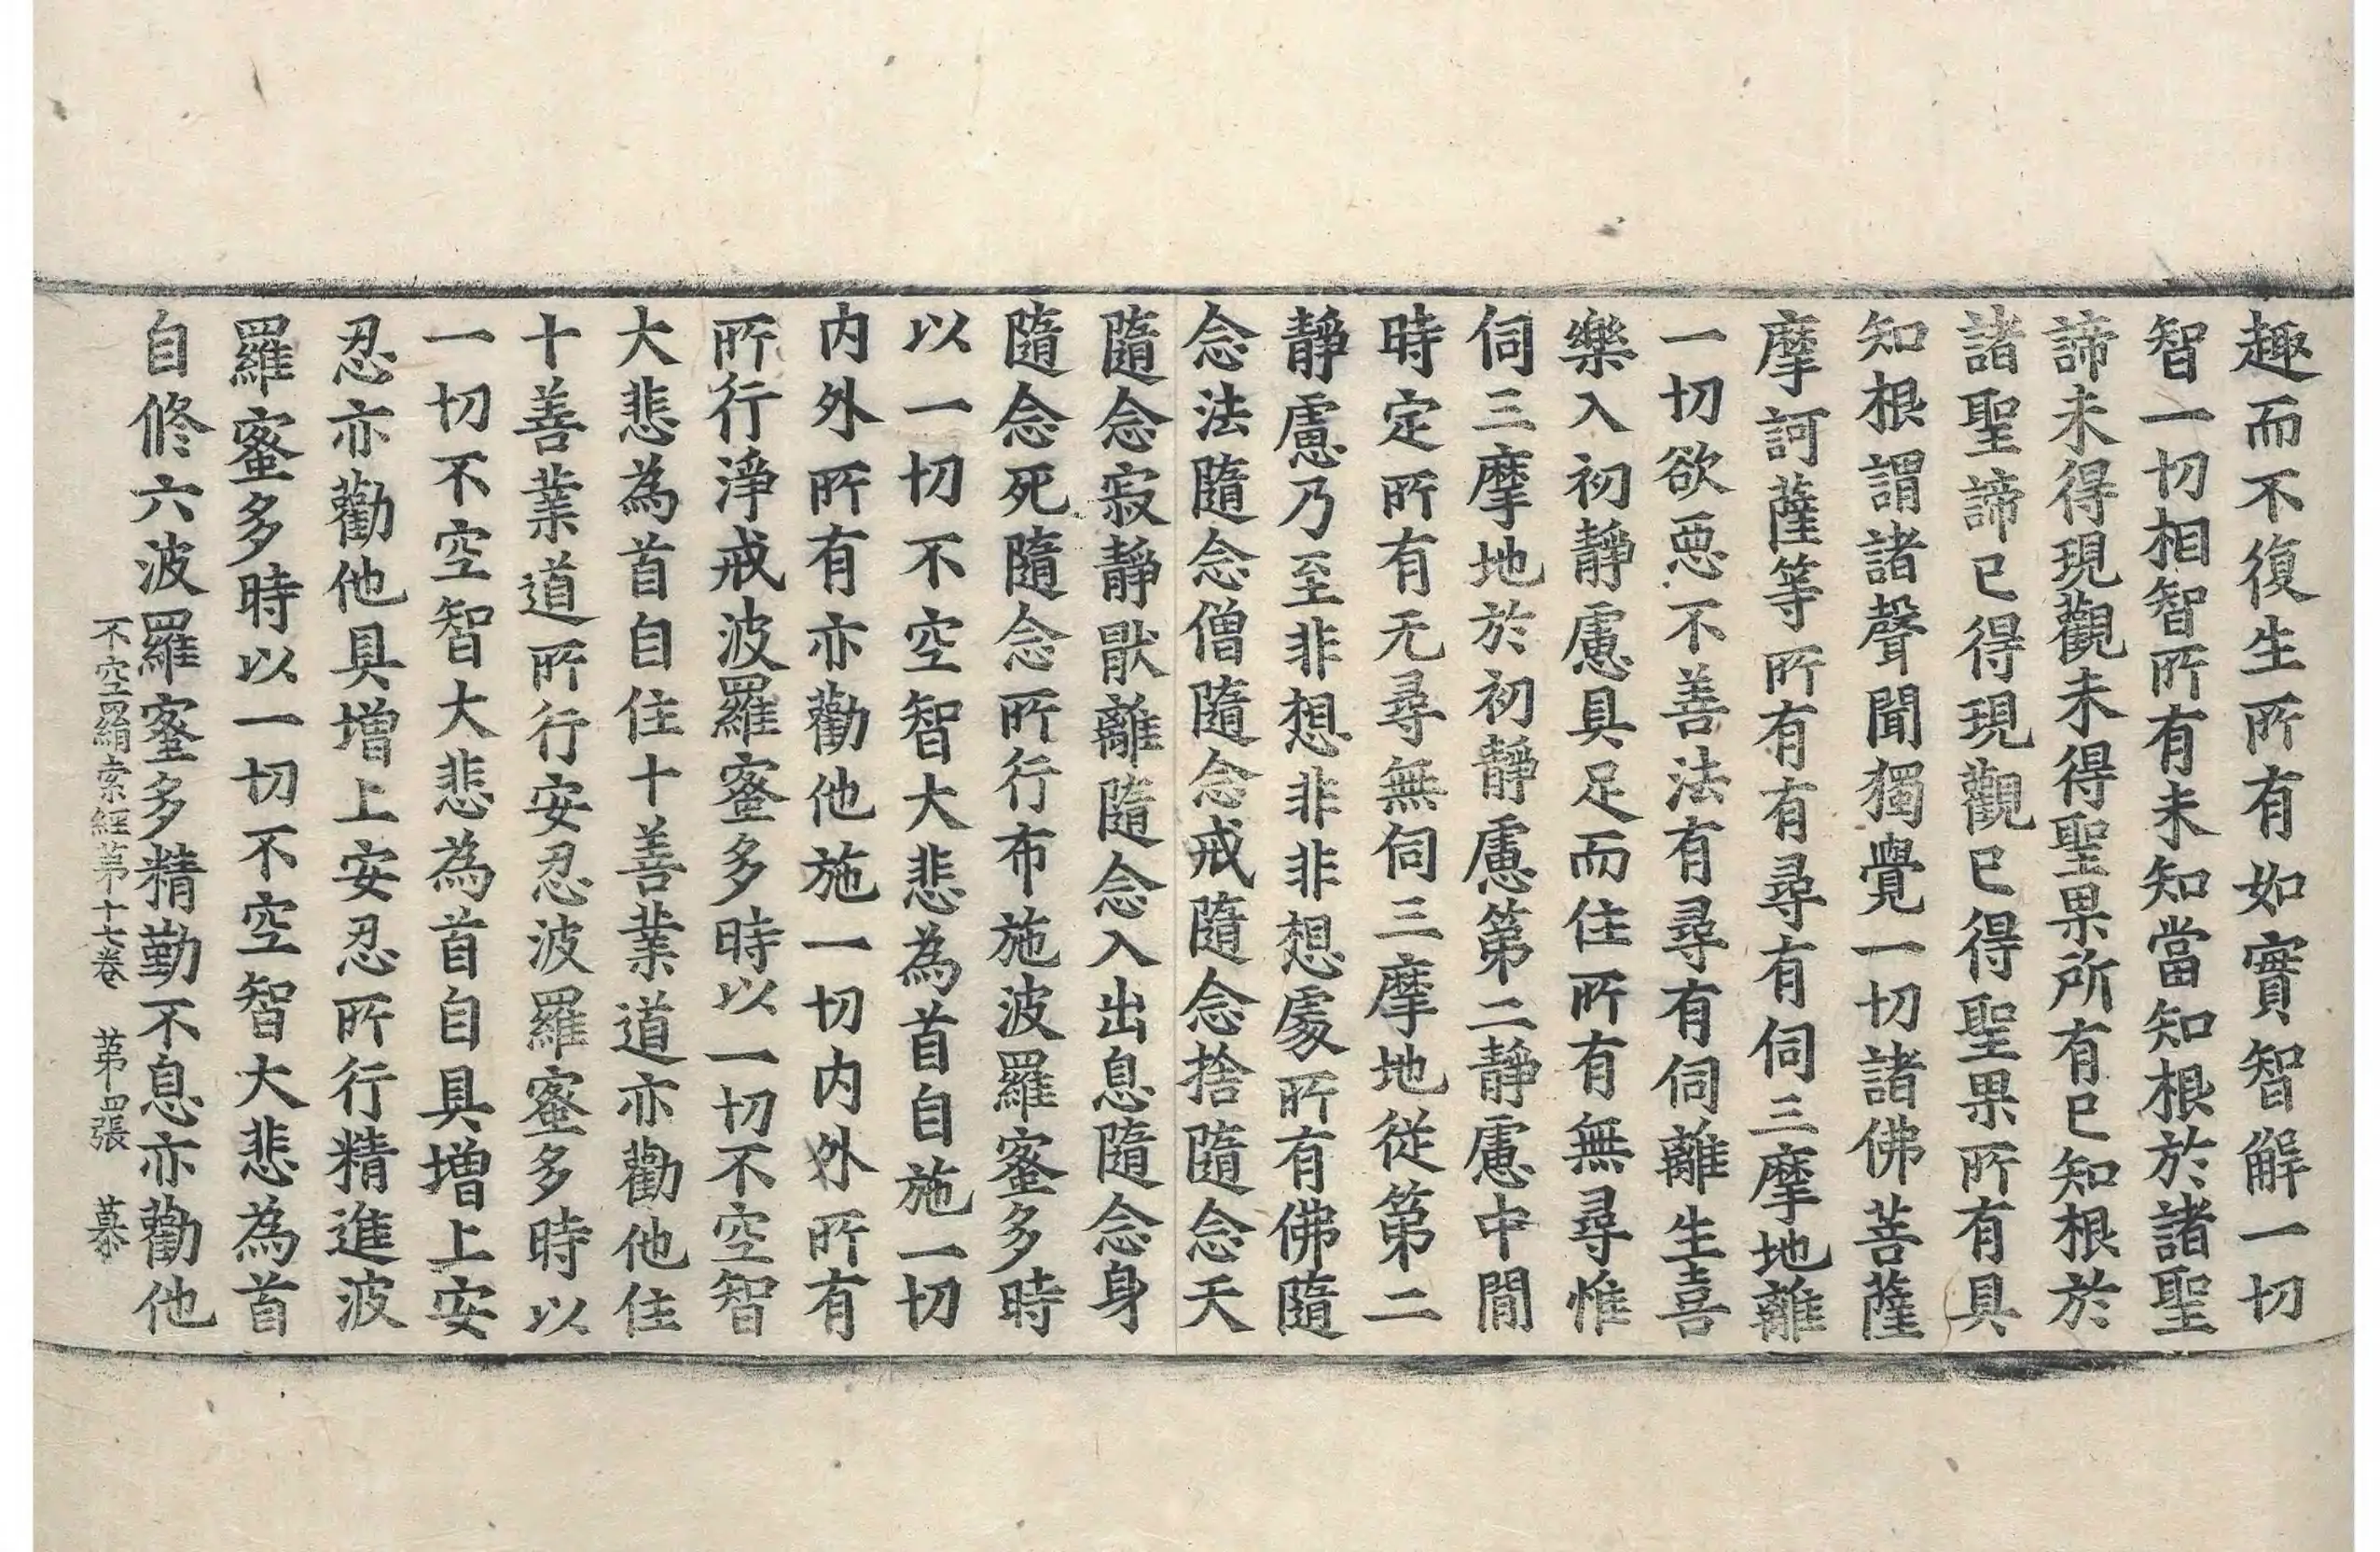 趣而不復生所有如實智解一切
智一切相智所有未知當知根於諸聖
諦未得現觀未得聖果所有已知根於
諸聖諦已得現觀已得聖果所有具
知根謂諸聲聞獨覺一切諸佛菩薩
摩訶薩等所有有尋有伺三摩地離
一切欲惡不善法有尋有伺離生喜
樂入初靜慮具足而住所有無尋惟
伺三摩地於初靜慮第二靜慮中間
時定所有无尋無伺三摩地從第二
靜慮乃至非想非非想處所有佛隨
念法隨念僧隨念戒隨念捨隨念天
隨念寂靜猒離隨念入出息隨念身
隨念死隨念所行布施波羅蜜多時
以一切不空智大悲為首自施一切
内外所有亦勸他施一切内外所有
所行淨戒波羅蜜多時以一切不空智
大悲為首自住十善業道亦勸他住
十善業道所行安忍波羅蜜多時以
一切不空智大悲為首自具增上安
忍亦勸他具增上安忍所行精進波
羅蜜多時以一切不空智大悲為首
自修六波羅蜜多精勤不息亦勸他
不空羂索經第十七卷 第四張 慕